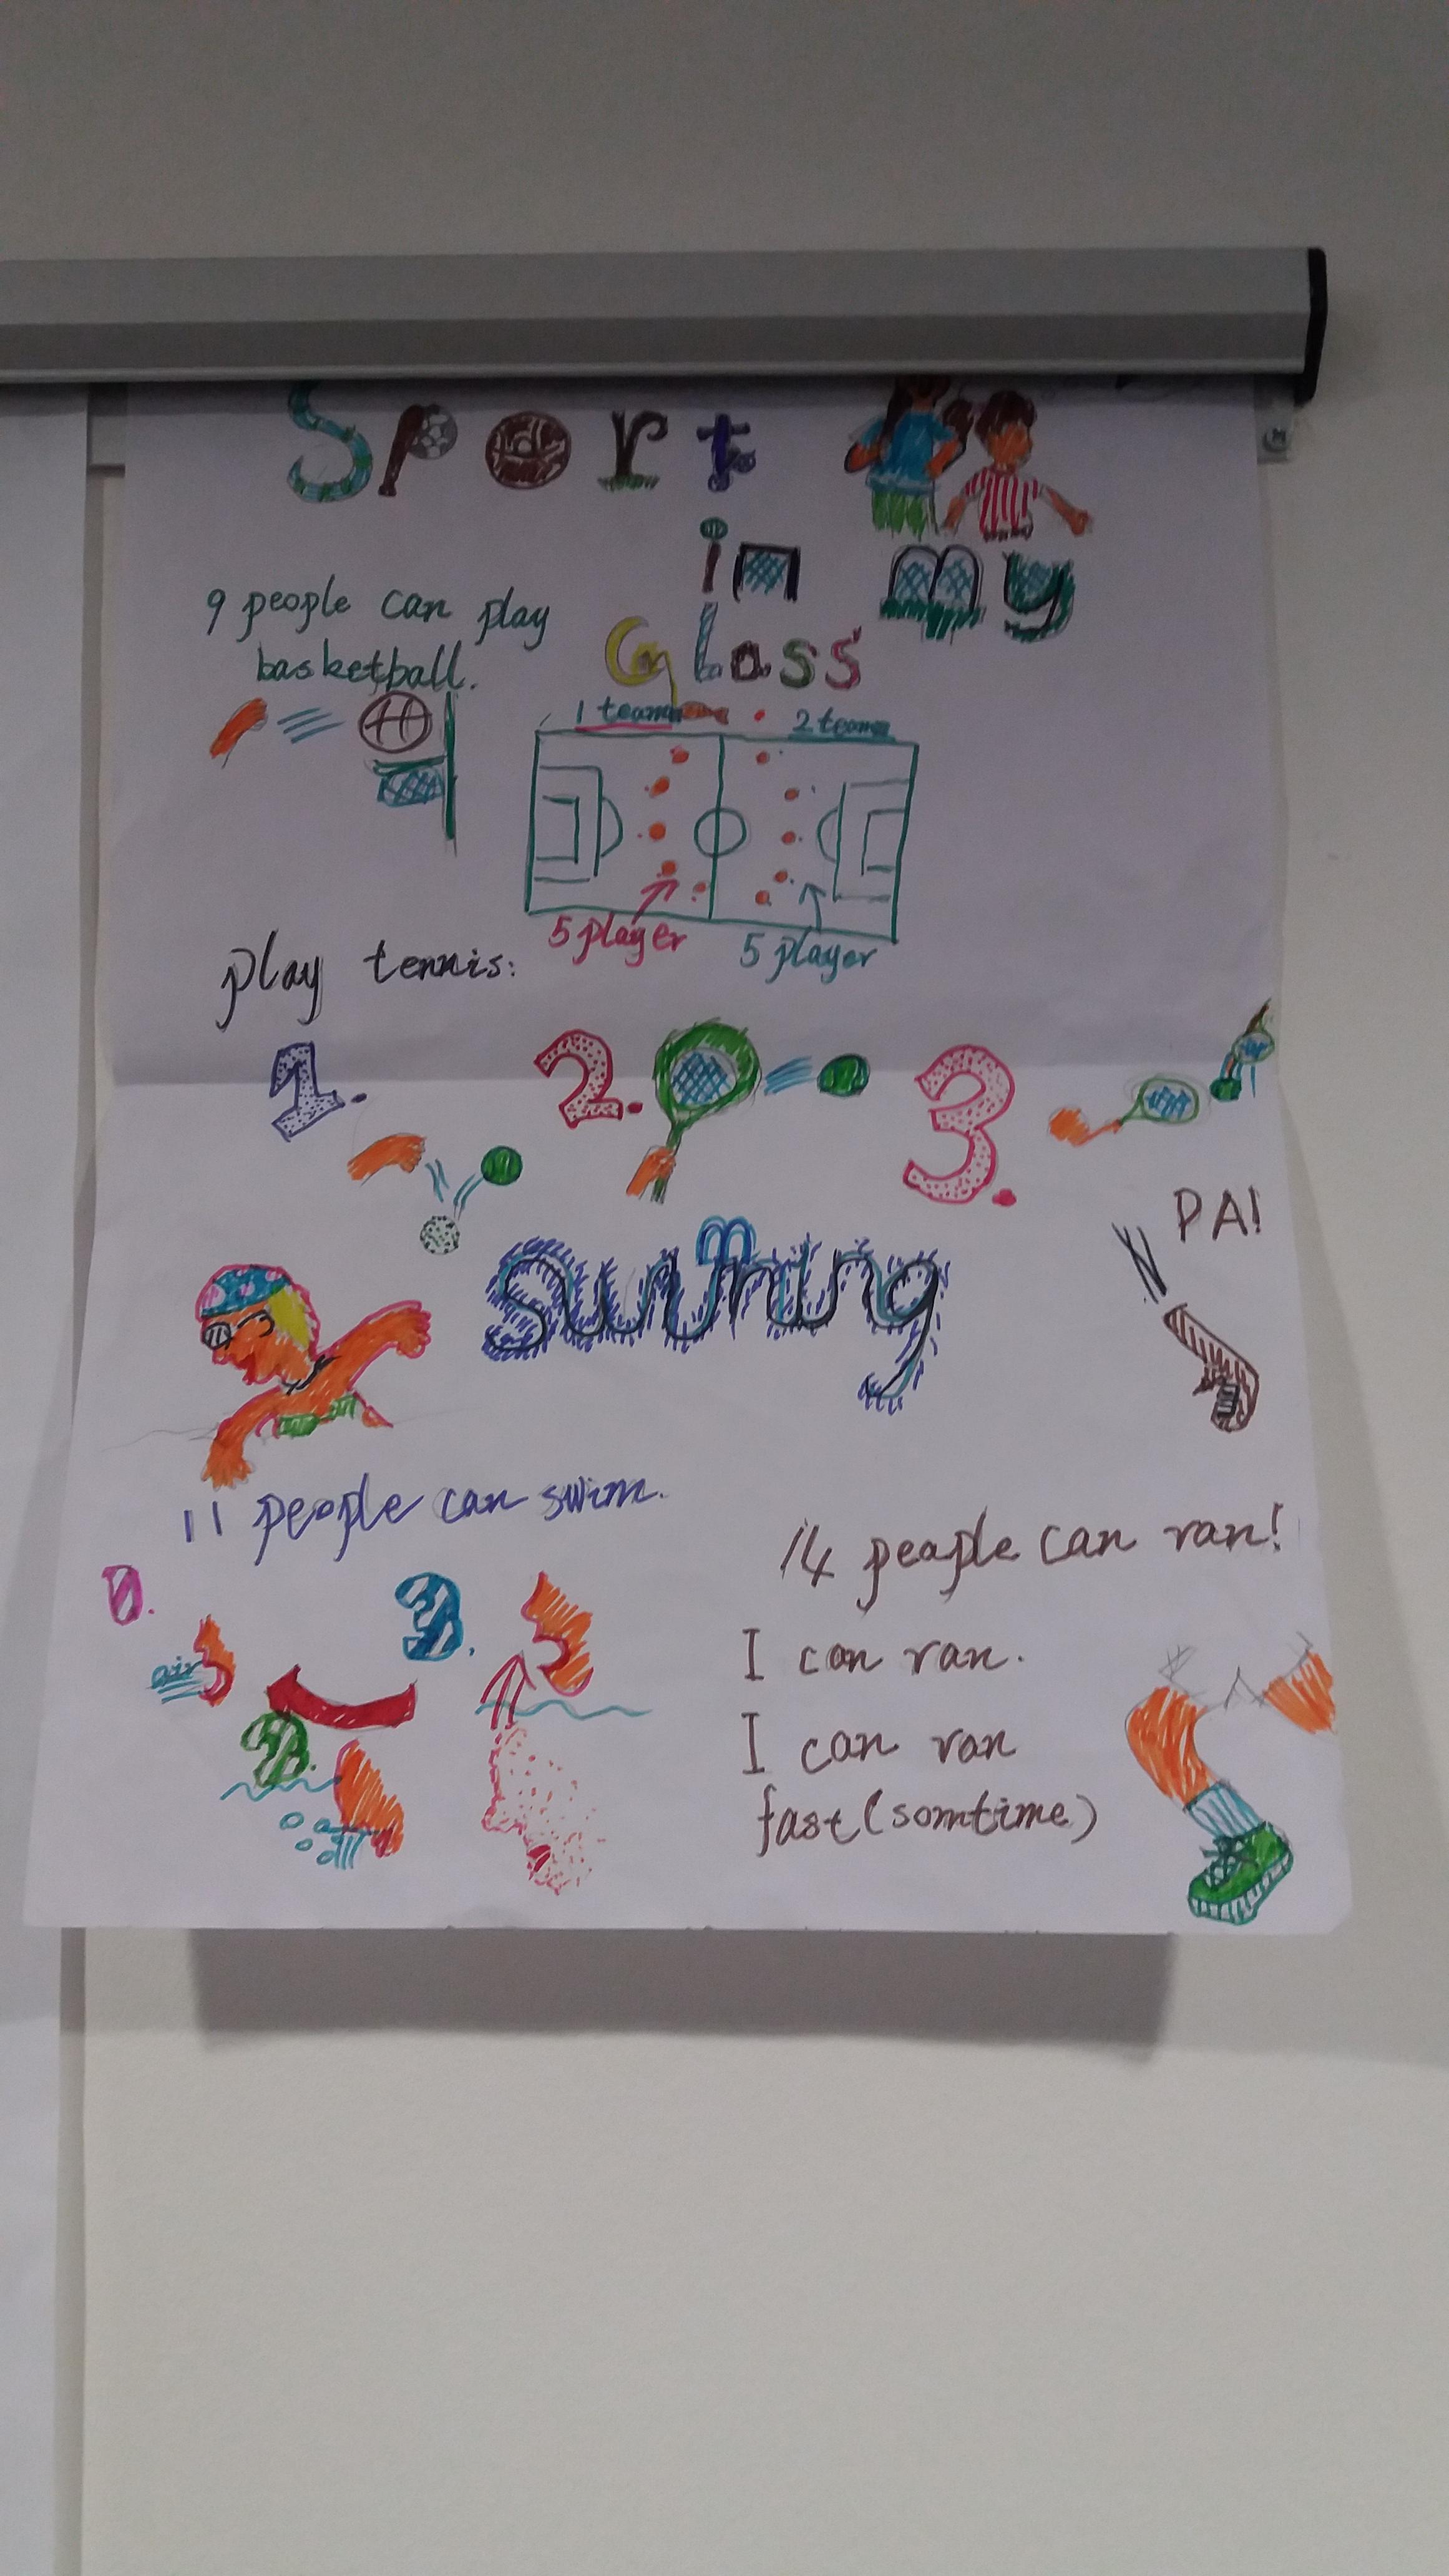 Sport
in my
Class
9 people can play
basketball.
1 team 2 team
5 player 5 player
play tennis:
1. 2. 3.
PA!
11 people can swim.
14 people can ran!
3.
air
2.
I can ran.
I can ran
fast (somtime)